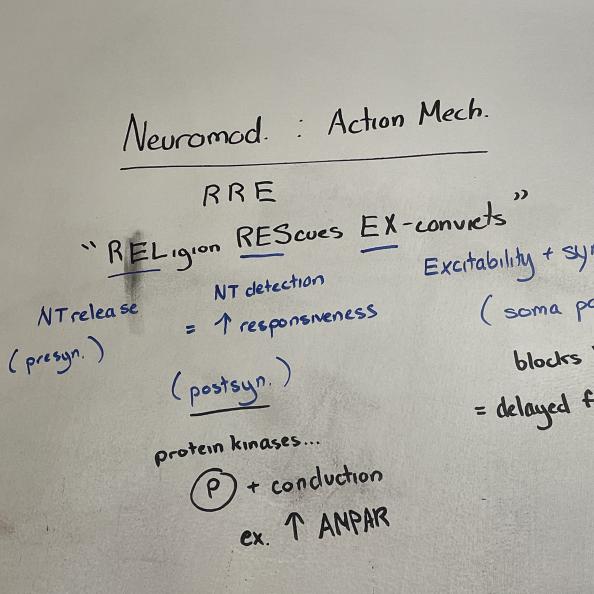 Neuromod. : Action Mech.
RRE
"RELigion REScues EX-convicts"
NT release
(presyn.)
NT detection
= ↑ responsiveness
(postsyn.)
protein kinases...
P + conduction
ex. ↑ AMPAR
Excitability +
(soma
blocks
= delayed